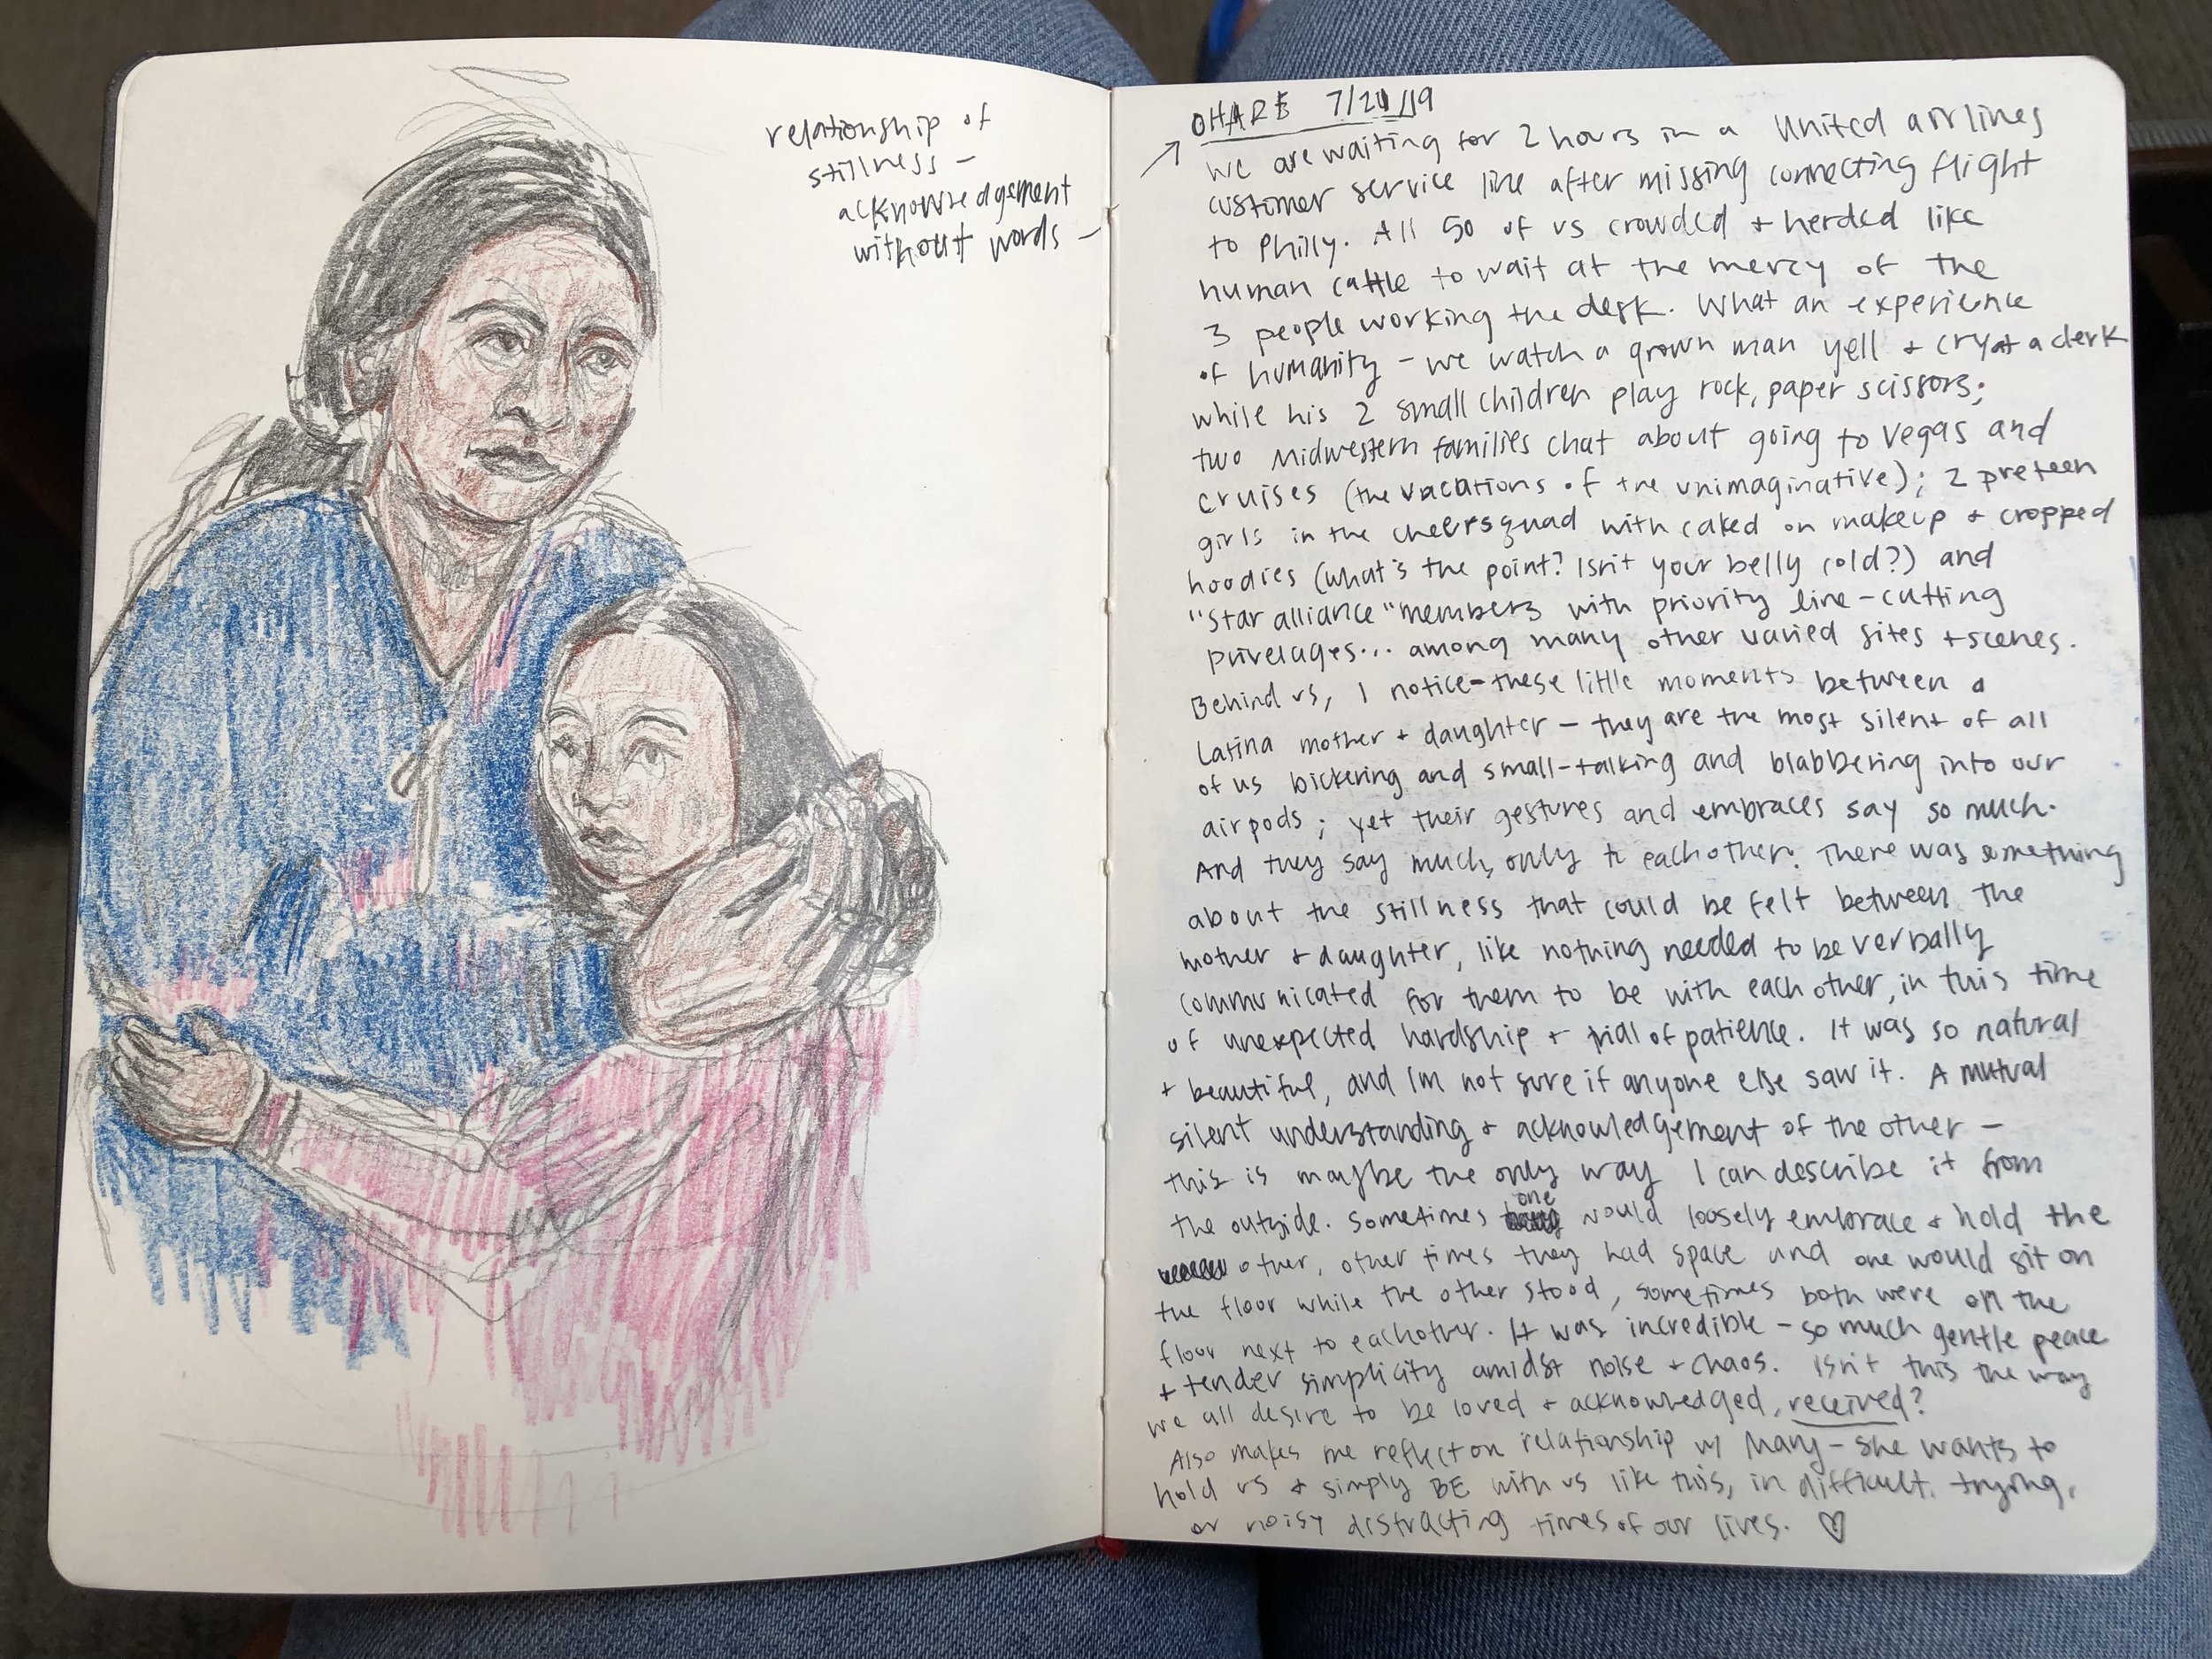 relationship of
stillness –
acknowledgement
without words –
OHARE 7/21/19
we are waiting for 2 hours in a United airlines
customer service line after missing connecting flight
to Philly. All 50 of us crowded + herded like
human cattle to wait at the mercy of the
3 people working the desk. What an experience
of humanity – we watch a grown man yell + cry at a clerk
while his 2 small children play rock, paper scissors;
two Midwestern families chat about going to Vegas and
cruises (the vacations of the unimaginative); 2 preteen
girls in the cheersquad with caked on makeup + cropped
hoodies (what's the point? Isn't your belly cold?) and
"Star alliance" members with priority line-cutting
privelages... among many other varied sites + scenes.
Behind us, I notice these little moments between a
Latina mother + daughter – they are the most silent of all
of us bickering and small-talking and blabbering into our
airpods; yet their gestures and embraces say so much.
And they say much, only to eachother. There was something
about the stillness that could be felt between the
mother + daughter, like nothing needed to be verbally
communicated for them to be with each other, in this time
of unexpected hardship + trial of patience. It was so natural
+ beautiful, and Im not sure if anyone else saw it. A mutual
silent understanding + acknowledgement of the other –
this is maybe the only way I can describe it from
the outside. Sometimes one would loosely embrace + hold the
other, other times they had space and one would sit on
the floor while the other stood, sometimes both were on the
floor next to eachother. It was incredible – so much gentle peace
+ tender simplicity amidst noise + chaos. Isn't this the way
we all desire to be loved + acknowledged, received?
Also makes me reflect on relationship w/ Mary – she wants to
hold us + simply BE with us like this, in difficult, trying,
or noisy distracting times of our lives. ♡